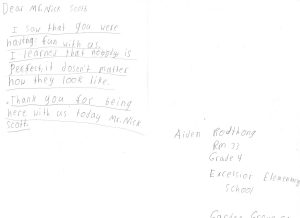 Dear Mr. Nick Scott
I saw that you were
having fun with us.
I learned that nobody is
perfect, it doesn't matter
how they look like.
Thank you for being
here with us today Mr. Nick
Scott.
Aiden
Rm 33
Grade 4
Excelsior Elementary
School